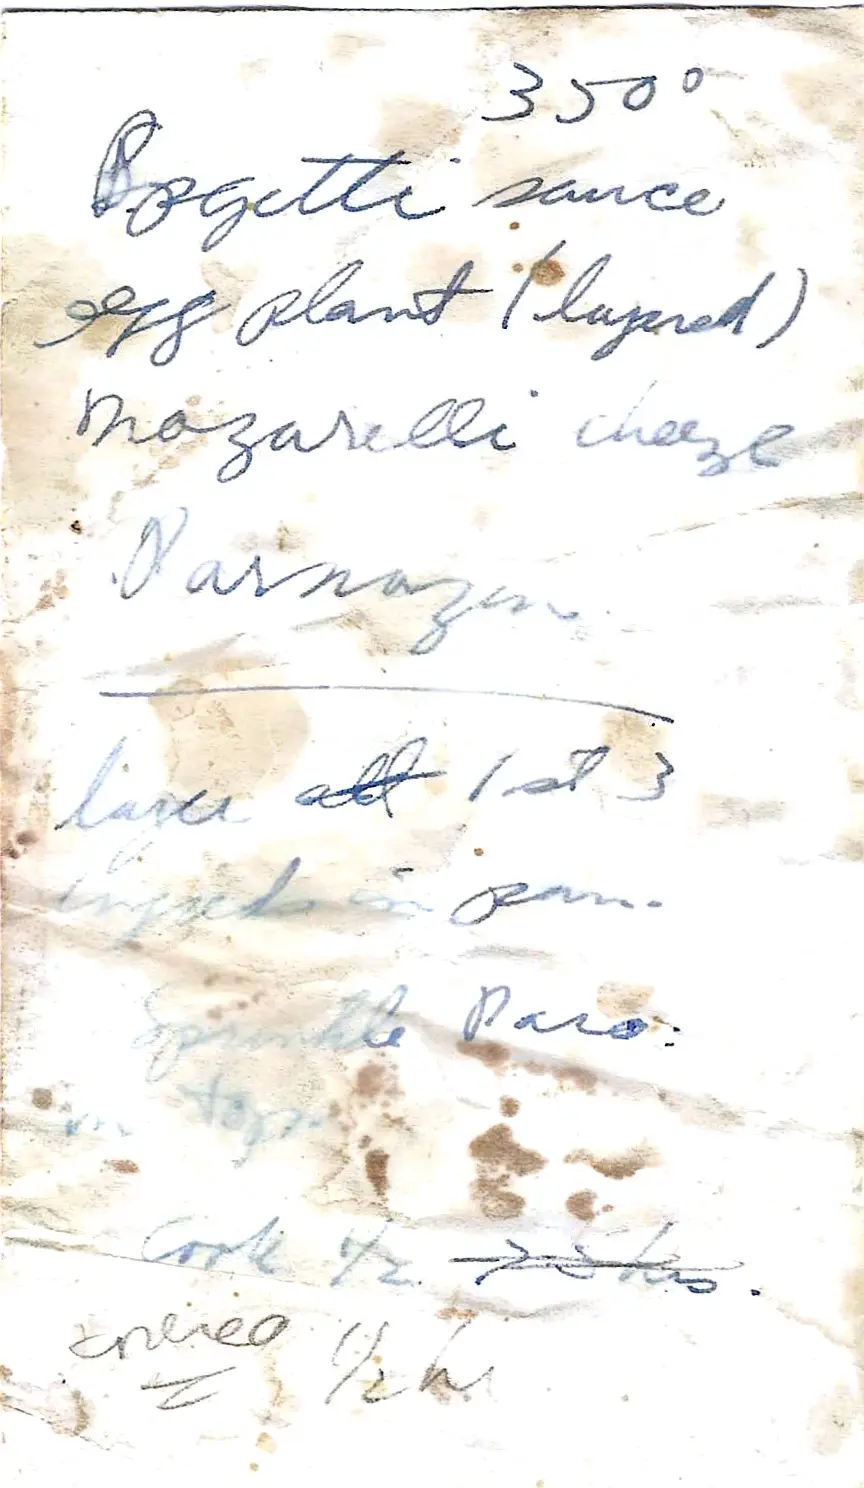 350°
Bpagetti sauce
egg plant (layered)
Mozarelli cheeze
Parmazen
layer 1st 3
ingreds in pan.
Sprinkle Parm.
on top.
Cook 1/2
covered 1/2 hr